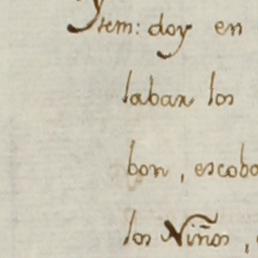 Ytem: doy en
laban los
bon, escoba
los Niños,